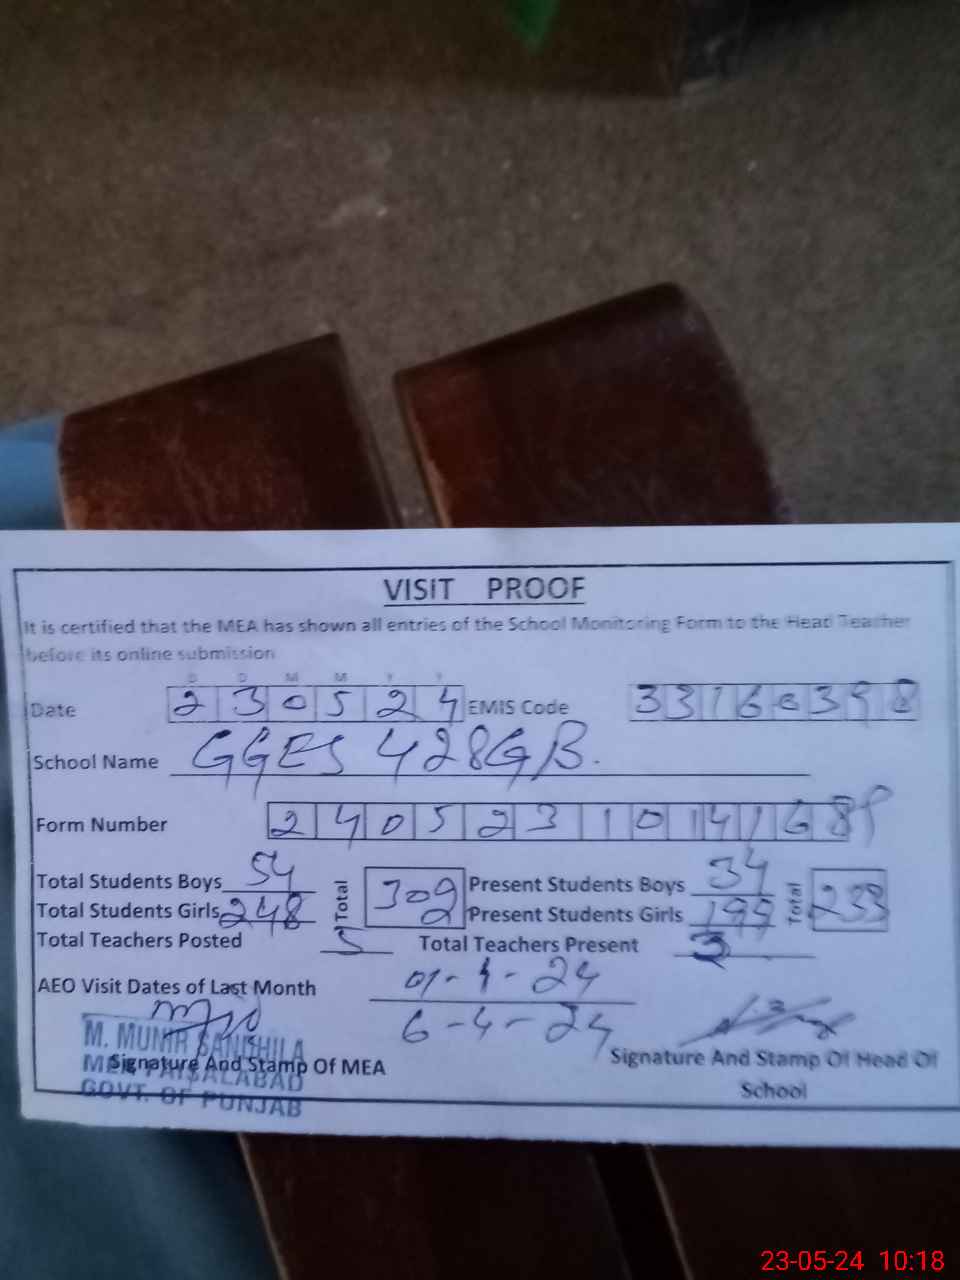 VISIT PROOF
It is certified that the MEA has shown all entries of the School Monitoring Form to the Head Teacher
before its online submission
D D M M Y Y
Date 230524 EMIS Code 33160398
School Name GGES 428GB.
Form Number 2405231014168
Total Students Boys 54 Total 302 Present Students Boys 34 Total 233
Total Students Girls 248 Present Students Girls 199
Total Teachers Posted 5 Total Teachers Present 3
AEO Visit Dates of Last Month 01-4-24
6-4-24
M. MUNIR
Signature And Stamp Of MEA Signature And Stamp Of Head Of
FAISALABAD School
GOVT. OF PUNJAB
23-05-24 10:18